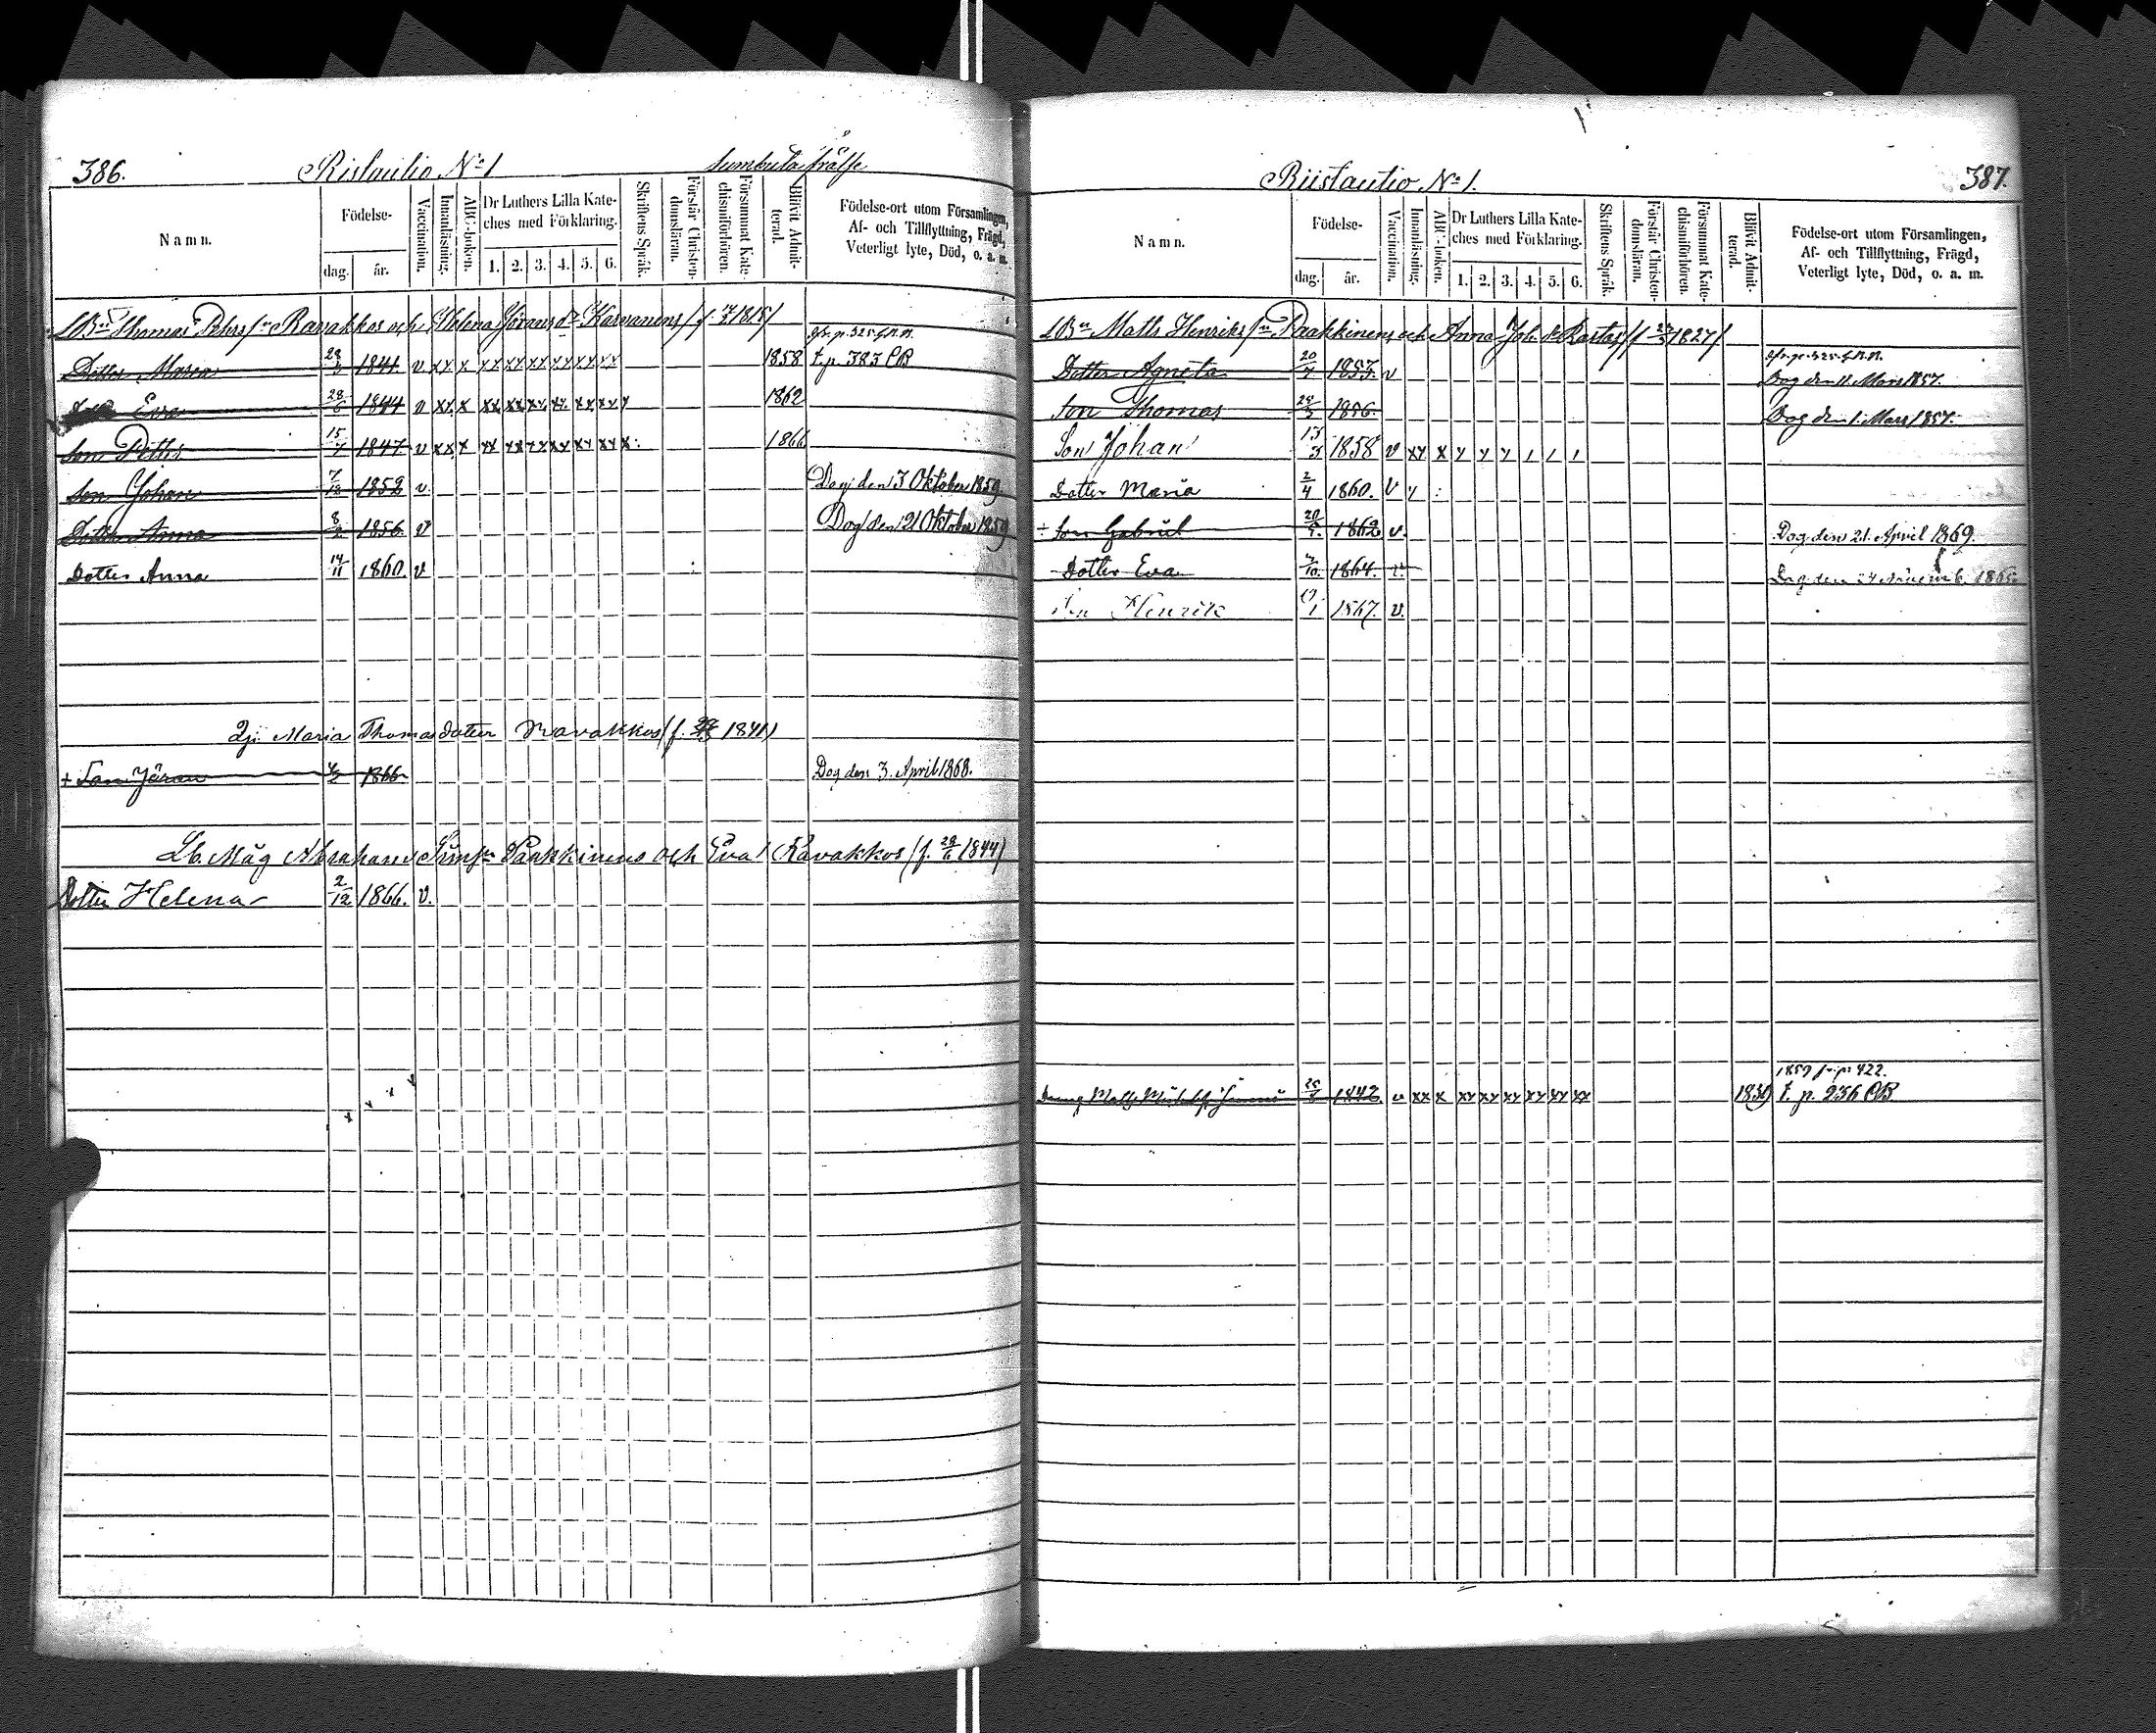 386. Ristautio No 1
Namn.
Födelse-
dag.
år.
Vaccination.
Innanläsning.
ABC-boken.
Dr Luthers Lilla Kate-
ches med Förklaring.
1. 2. 3. 4. 5. 6.
Skriftens Språk.
Förstår Christen-
domsläran.
Försummat Kate-
chismiförhören.
Blifvit Admit-
terad.
Födelse-ort utom Församlingen,
Af- och Tillflyttning, Frägd,
Veterligt lyte, Död, o. a. m.
Thomas Ravakkos och Helena Jörans dr Karvanens
Dotter Maria 1841 v xx x xx xx xx xx xx xx 1858 f. p. 383 CB
Eva 28/6 1844 v xx x xx xx xx xx xx xx 1862
Son Petter 15/7 1847 v xx x xx xx xx xx xx xx x 1866
Son Johan 7/12 1852 v. Dog den 3 Oktober 1859
Dotter Anna 1856 v Dog den 21 Oktober 1859
Dotter Anna 14/11 1860. v
Maria Thomas dotter Ravakkos (f. 1841)
+ Son Jöran 1866 Dog den 3. April 1868.
Lb. Måg Abraham Paakkinens och Eva Ravakkos (f. 28/6 1844)
Dotter Helena 2/12 1866. v.
Ristautio No 1. 387.
Namn.
Födelse-
dag.
år.
Vaccination.
Innanläsning.
ABC-boken.
Dr Luthers Lilla Kate-
ches med Förklaring.
1. 2. 3. 4. 5. 6.
Skriftens Språk.
Förstår Christen-
domsläran.
Försummat Kate-
chismiförhören.
Blifvit Admit-
terad.
Födelse-ort utom Församlingen,
Af- och Tillflyttning, Frägd,
Veterligt lyte, Död, o. a. m.
Matts Henriks Paakkinens och Anna Joh. dr Rastas 1827
Dotter Agneta 1853. v Dog den 11. Mars 1857.
Son Thomas 1856. Dog den 1. Mars 1857.
Son Johan 13/3 1858 v xx x
Dotter Maria 2/4 1860. v
+ Son Gabriel 1862 v. Dog den 21. April 1869.
Dotter Eva 1864. v.
Son Henrik 1867. v.
1859 fr. p. 422.
Dräng Matts 1842 v xx x xx xx xx xx xx xx 1859 f. p. 256 CB